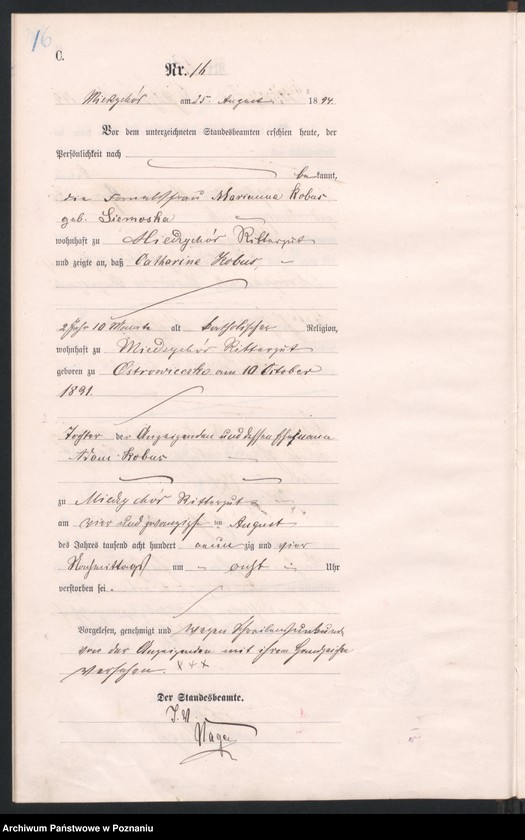 16
C.
Nr. 16
Miedzychór am 25. August 1894.
Vor dem unterzeichneten Standesbeamten erschien heute, der
Persönlichkeit nach
bekannt,
die Marianna Kobus
geb.
wohnhaft zu Miedzychór Rittergut
und zeigte an, daß Catharine Kobus,
2 Jahr 10 Monate alt katholischer Religion,
wohnhaft zu Miedzychór Rittergut
geboren zu am 10 October
1891.
Tochter der Anzeigenden und dessen Ehemann
Adam Kobus
zu Miedzychór Rittergut
am vier und zwanzigsten August
des Jahres tausend acht hundert neunzig und vier
Nachmittags um acht Uhr
verstorben sei.
Vorgelesen, genehmigt und wegen Schreibensunkunde
von der Anzeigenden mit ihrem Handzeichen
versehen. x x x
Der Standesbeamte.
J. V.
Archiwum Państwowe w Poznaniu